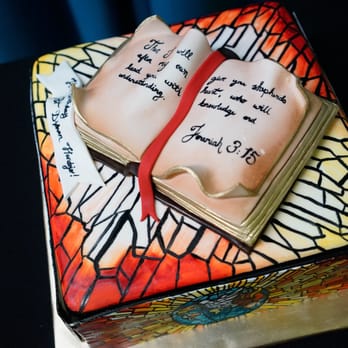 Then I will
give you shepherds
after my own
heart, who will
lead you with
knowledge and
understanding.
Jeremiah 3:15